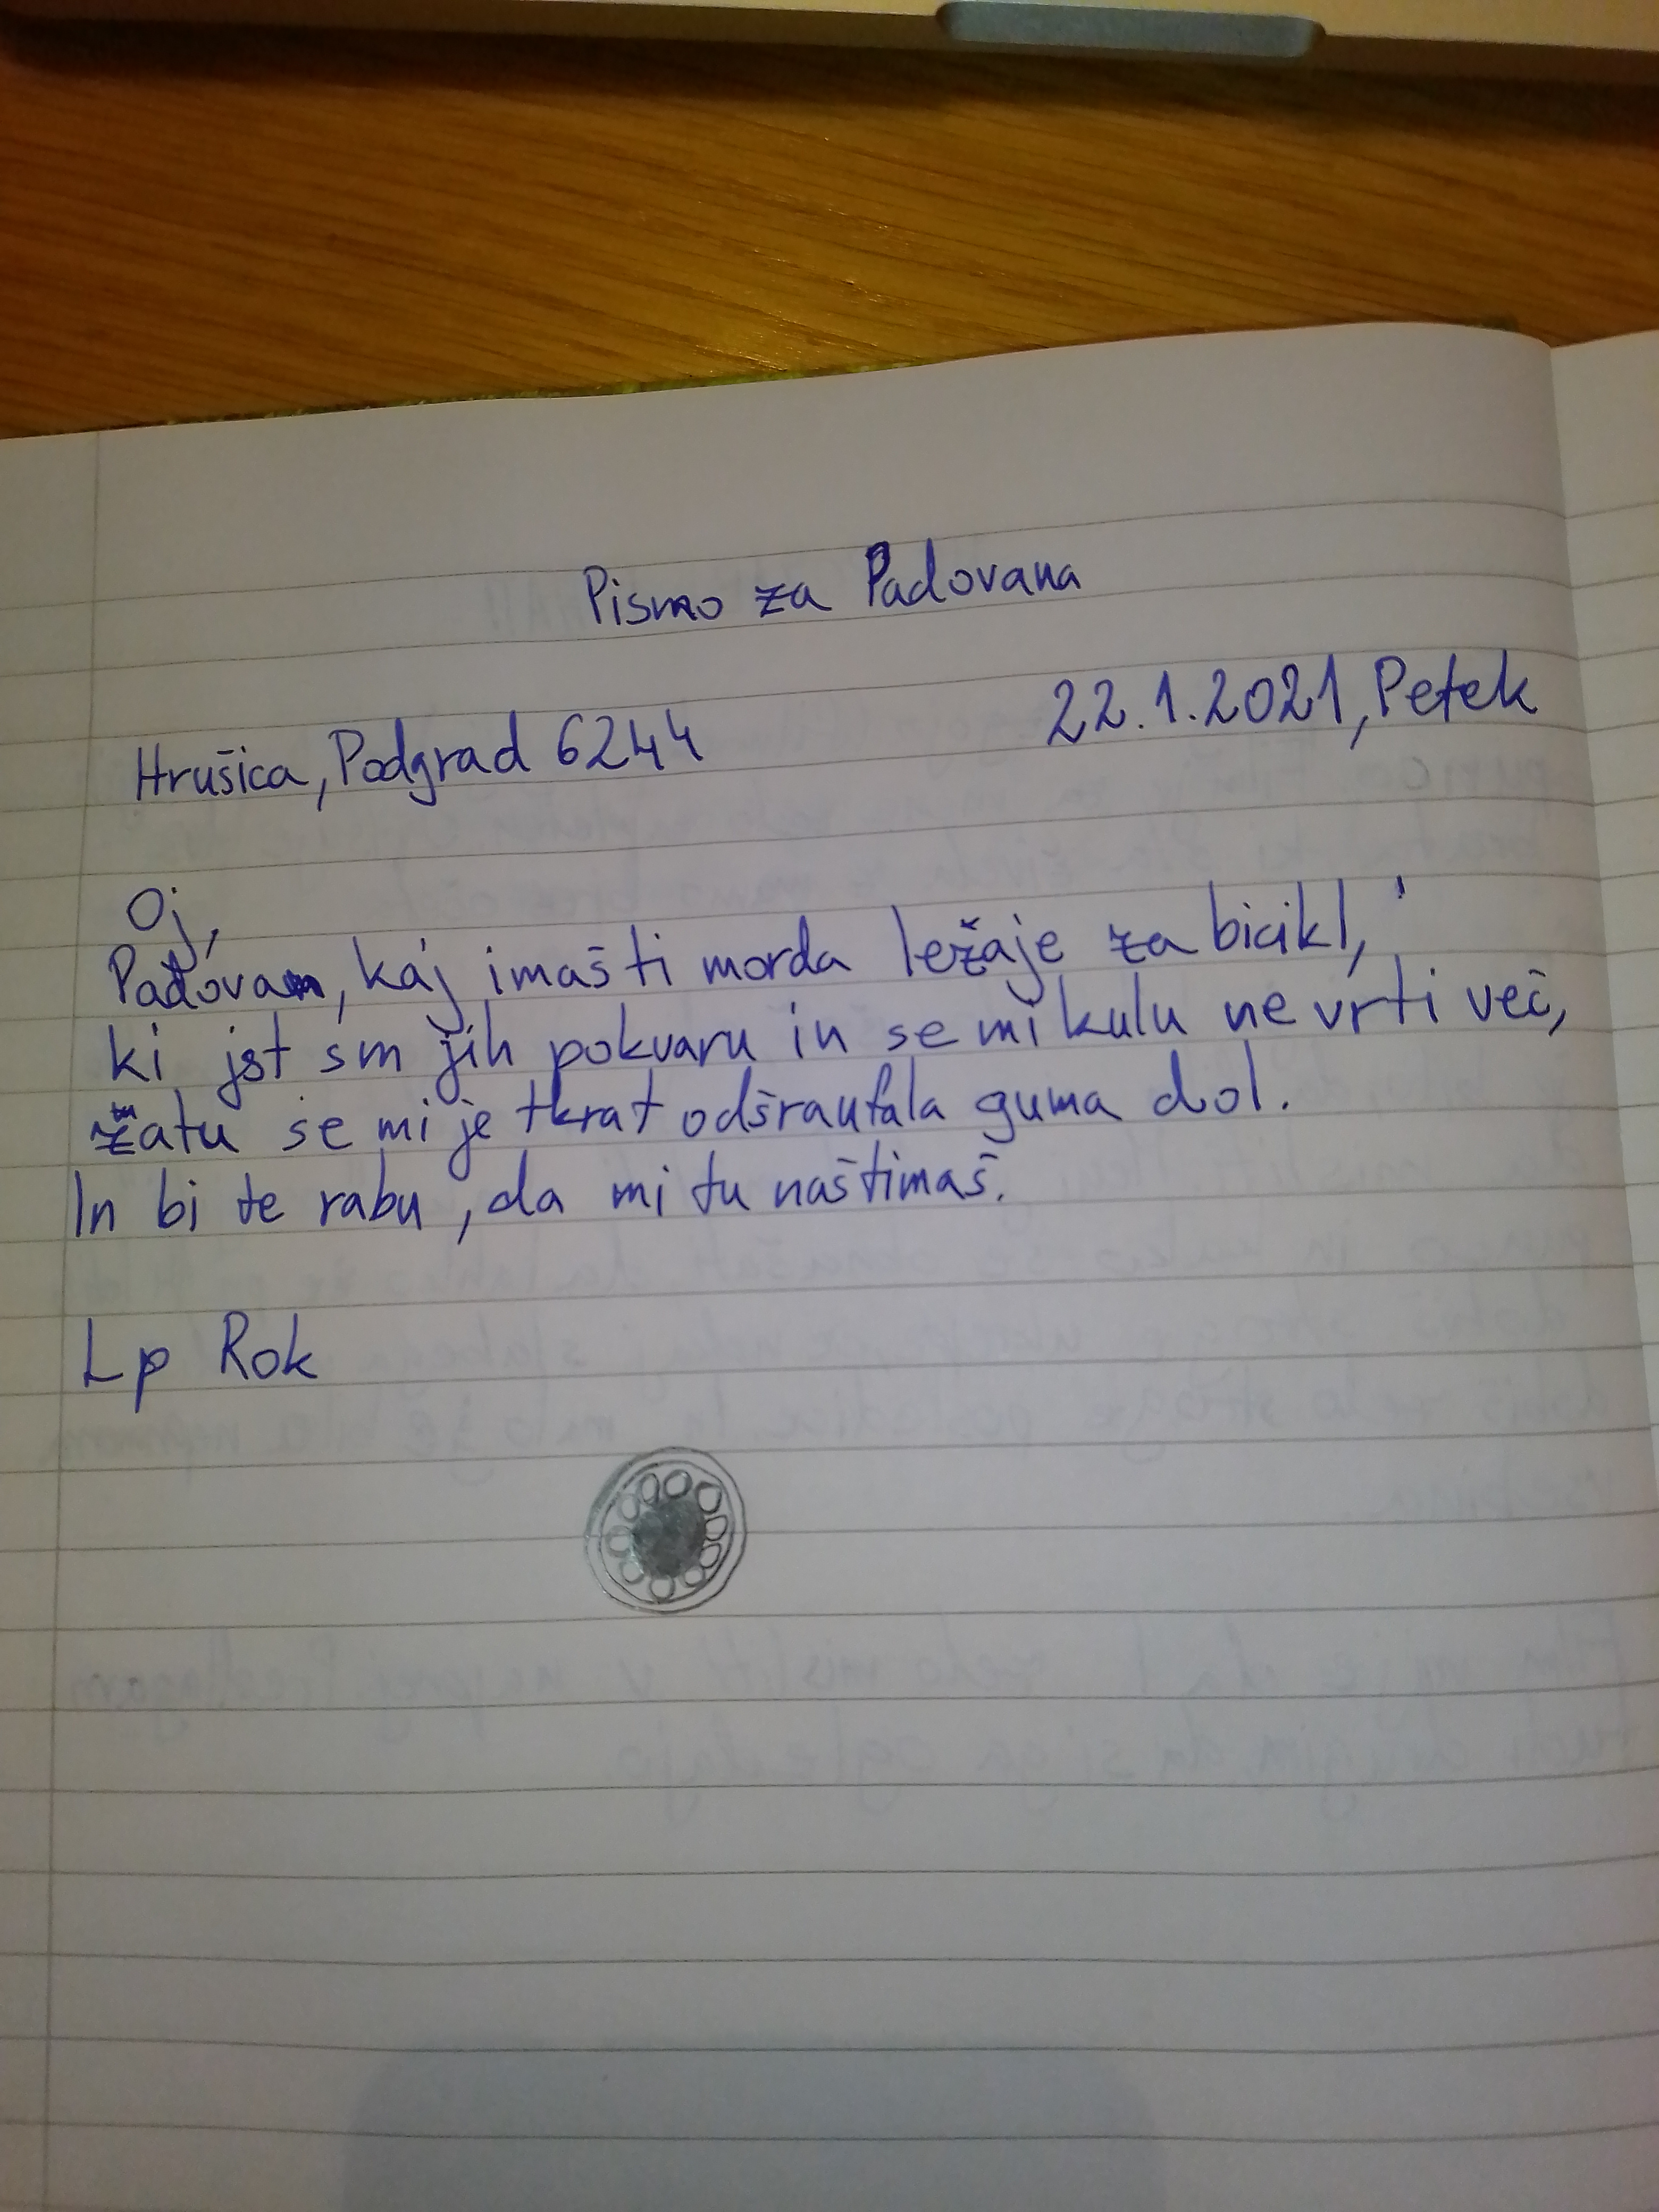 Pismo za Padovana
22.1.2021, Petek
Hrušica, Podgrad 6244
Oj,
Padovan, kaj imaš ti morda ležaje za bicikl,
ki jst sm jih pokvaru in se mi kulu ne vrti več,
zatu se mi je tkrat odšraufala guma dol.
In bi te rabu, da mi tu naštimaš.
Lp Rok